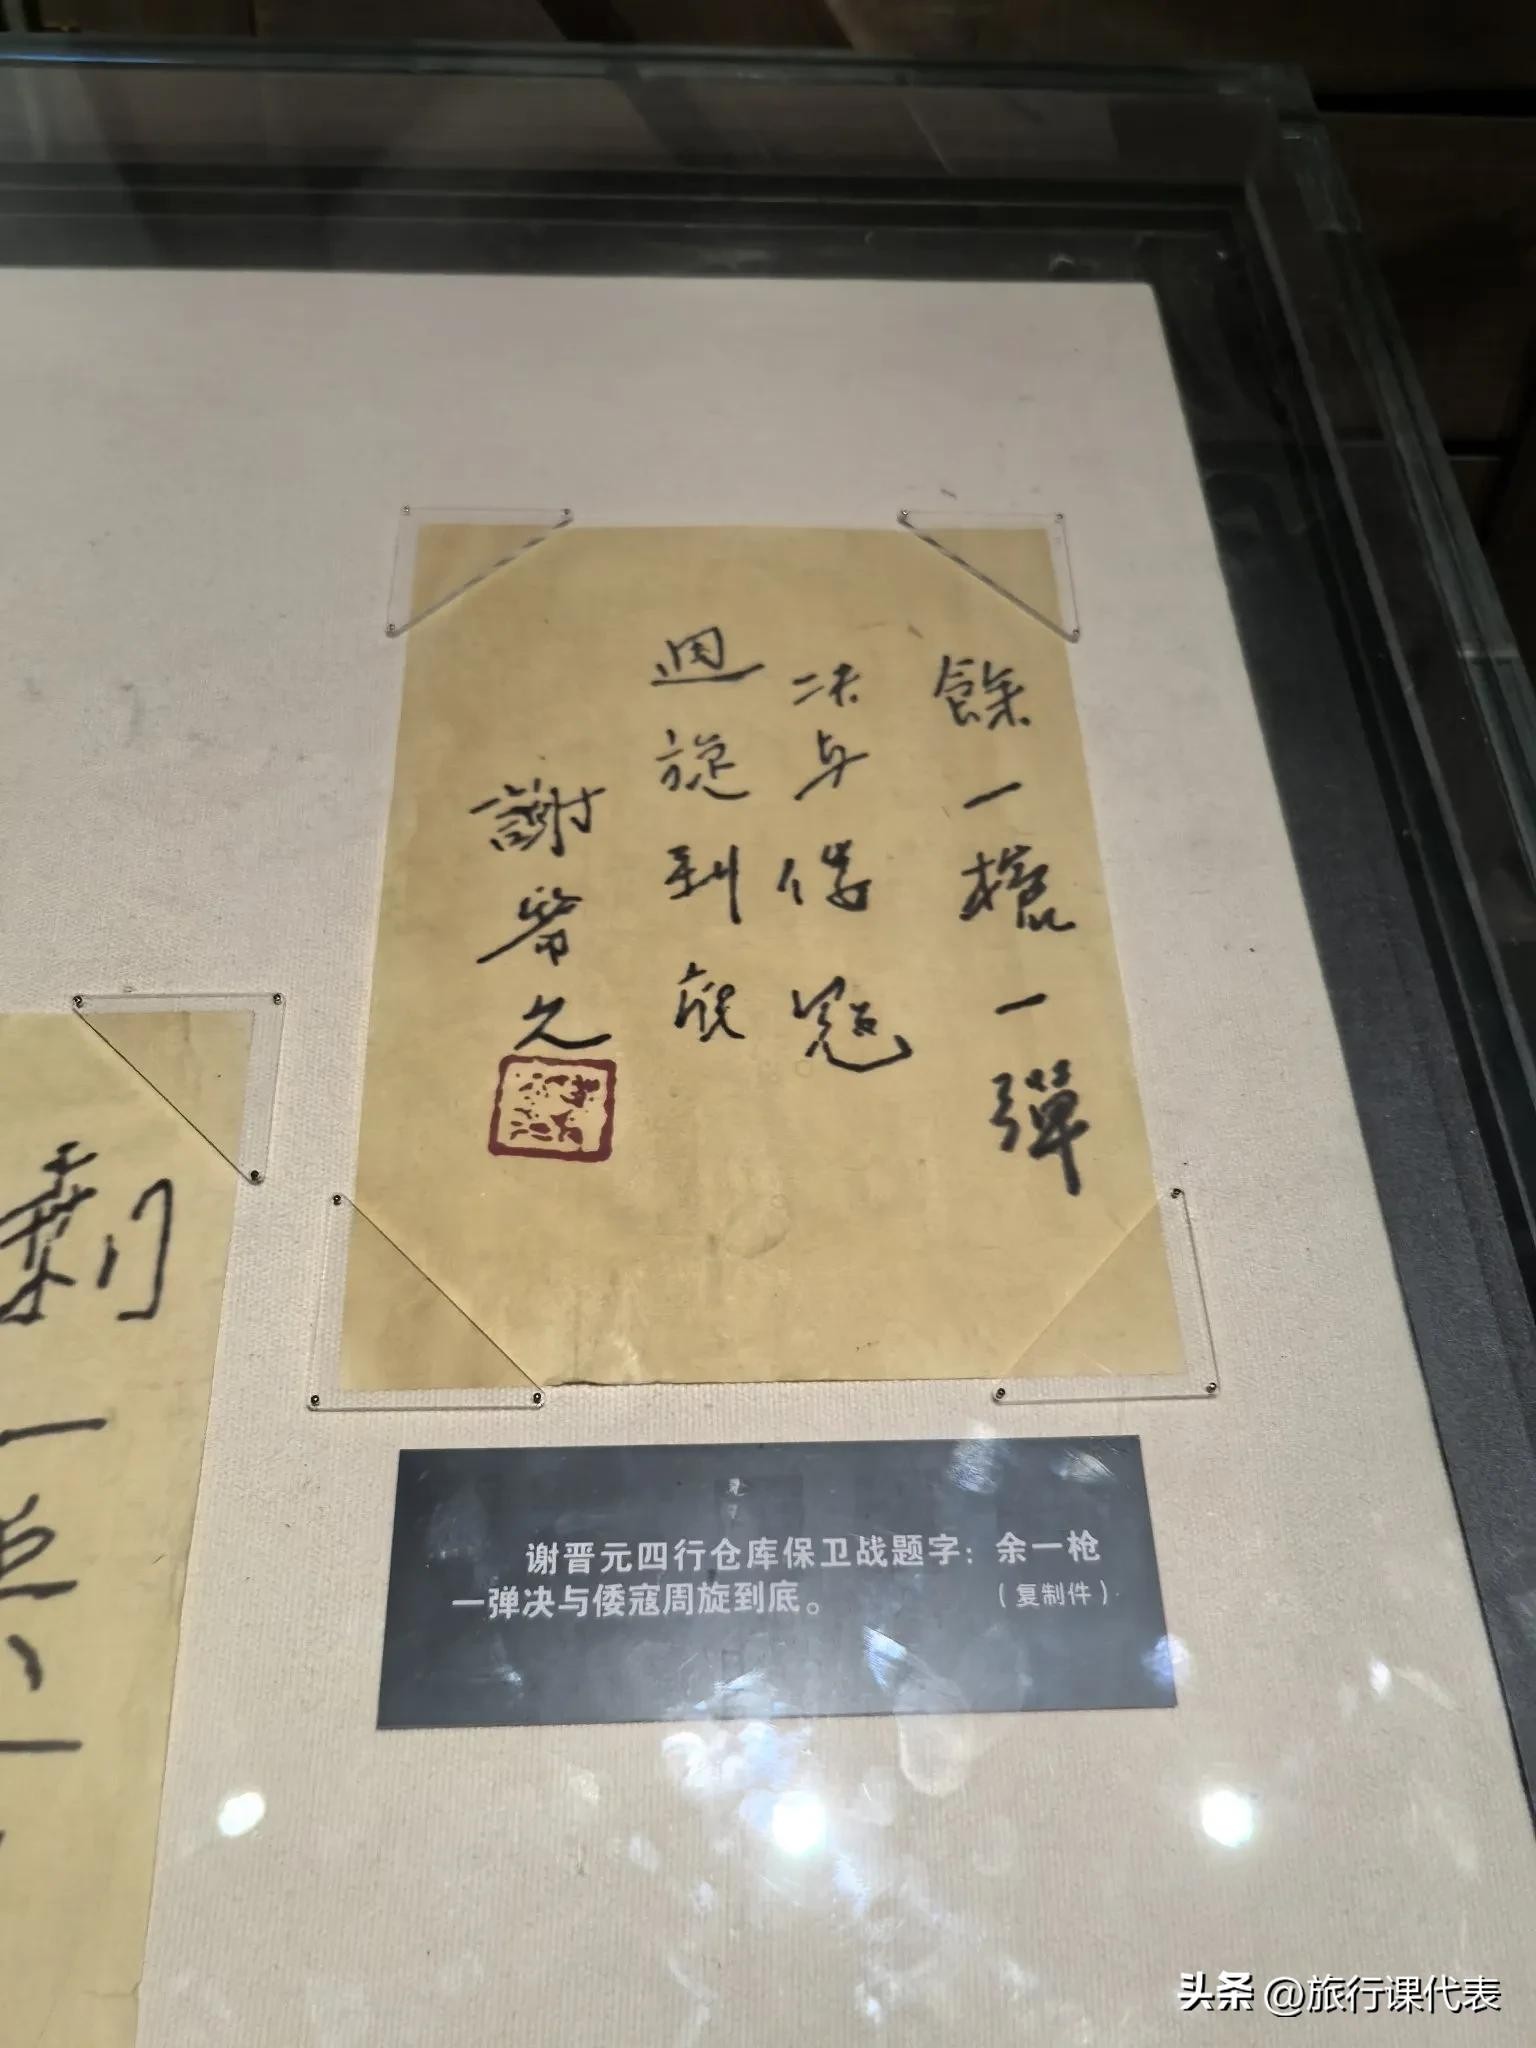 餘一槍一彈
决与倭寇
週旋到底
謝晋元
剩
一
谢晋元四行仓库保卫战题字：余一枪
一弹决与倭寇周旋到底。（复制件）
头条 @旅行课代表